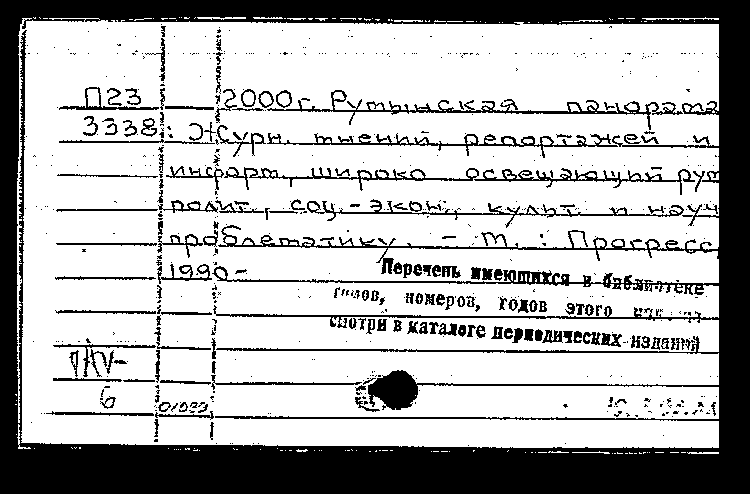 П23 2000г. Румынская панорама
3338 : Журн. мнений, репортажей и
информ., широко освещающий рум
полит., соц.-экон., культ. и науч
проблематику. - М. : Прогресс,
1990-
Перечень имеющихся в библиотеке
томов, номеров, годов этого
смотри в каталоге периодических изданий
6